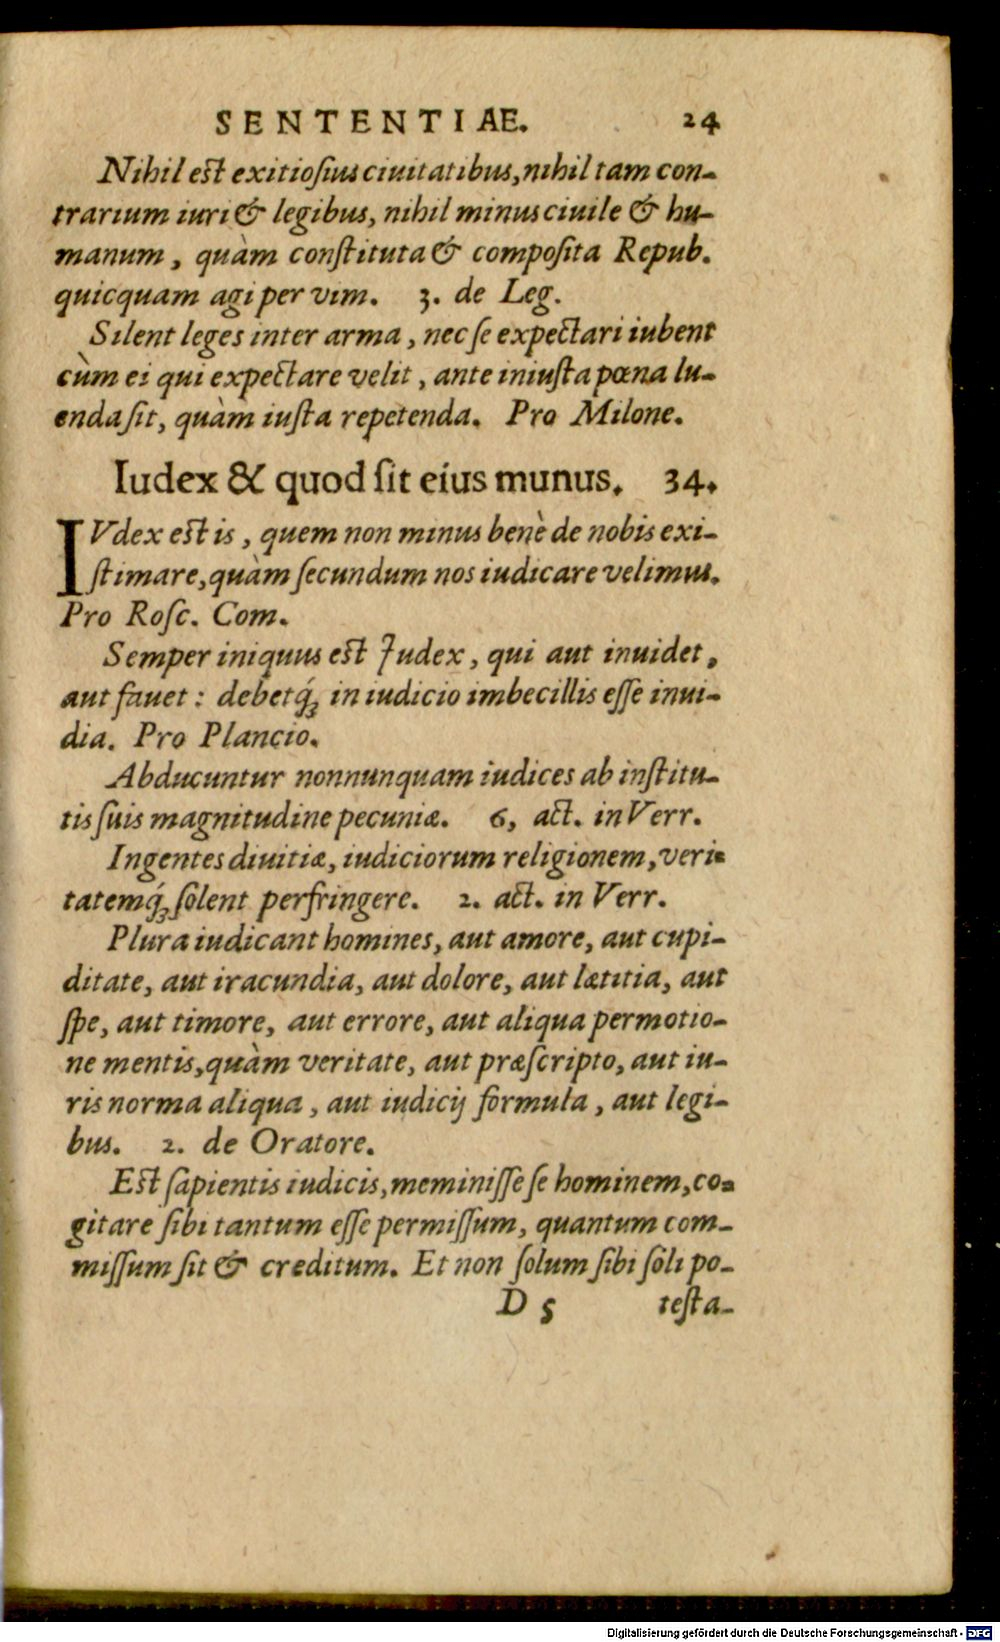 SENTENTIAE. 24
Nihil est exitiosius ciuitatibus, nihil tam con-
trarium iuri & legibus, nihil minus ciuile & hu-
manum, quàm constituta & composita Repub.
quicquam agi per vim. 3. de Leg.
Silent leges inter arma, nec se expectari iubent
cùm ei qui expectare velit, ante iniusta pœna lu-
enda sit, quàm iusta repetenda. Pro Milone.
Iudex & quod sit eius munus. 34.
IVdex est is, quem non minus benè de nobis exi-
stimare, quàm secundum nos iudicare velimus.
Pro Rosc. Com.
Semper iniquus est Iudex, qui aut inuidet,
aut fauet: debetq́ꝫ in iudicio imbecillis esse inui-
dia. Pro Plancio.
Abducuntur nonnunquam iudices ab institu-
tis suis magnitudine pecuniæ. 6, act. in Verr.
Ingentes diuitiæ, iudiciorum religionem, veri-
tatemq́ꝫ solent perfringere. 2. act. in Verr.
Plura iudicant homines, aut amore, aut cupi-
ditate, aut iracundia, aut dolore, aut lætitia, aut
spe, aut timore, aut errore, aut aliqua permotio-
ne mentis, quàm veritate, aut præscripto, aut iu-
ris norma aliqua, aut iudicij formula, aut legi-
bus. 2. de Oratore.
Est sapientis iudicis, meminisse se hominem, co-
gitare sibi tantum esse permissum, quantum com-
missum sit & creditum. Et non solum sibi soli po-
D 5 testa-
Digitalisierung gefördert durch die Deutsche Forschungsgemeinschaft - DFG